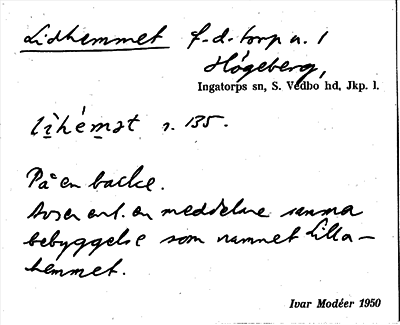 Lidhemmet f.d. torp u. 1
Högeberg,
Ingatorps sn, S. Vedbo hd, Jkp. l.
s. 135.
På en backe.
Avser enl. en meddelare samma
bebyggelse som namnet Lilla-
hemmet.
Ivar Modéer 1950